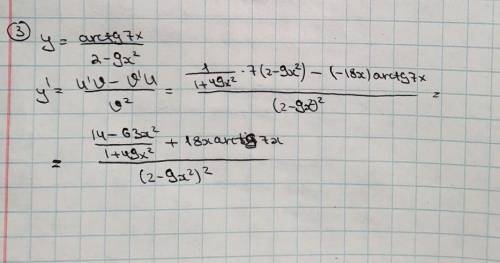 ③
y = arctg7x / 2-9x²
y' = u'ϑ - ϑ'u / ϑ² = 1/1+49x² · 7(2-9x²) - (-18x)arctg7x / (2-9x²)² =
= 14-63x²/1+49x² + 18x arctg7x / (2-9x²)²